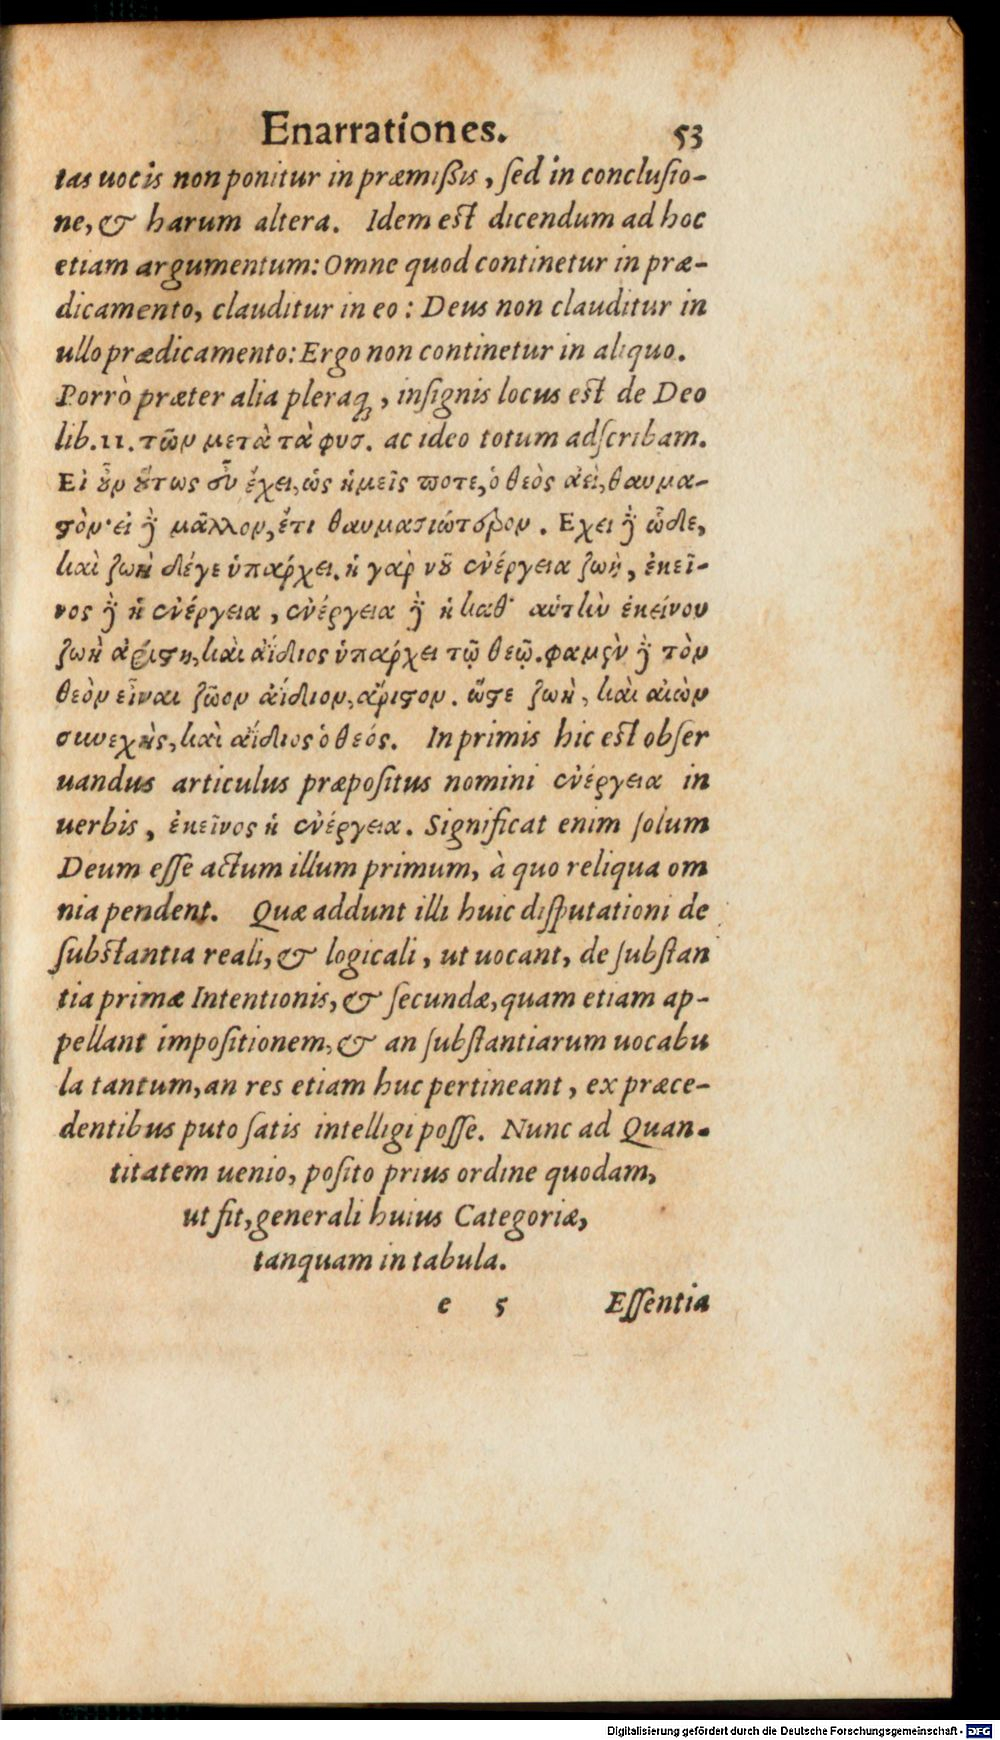 Enarrationes. 53
tas uocis non ponitur in præmißis, sed in conclusio-
ne, & harum altera. Idem est dicendum ad hoc
etiam argumentum: Omne quod continetur in præ-
dicamento, clauditur in eo: Deus non clauditur in
ullo prædicamento: Ergo non continetur in aliquo.
Porrò præter alia pleraq;, insignis locus est de Deo
lib. 11. τῶν μετὰ τὰ φυσ. ac ideo totum adscribam.
Εἰ οὖν οὕτως εὖ ἔχει, ὡς ἡμεῖς ποτε, ὁ θεὸς ἀεὶ, θαυμα-
στόν· εἰ δὲ μᾶλλον, ἔτι θαυμασιώτερον. Εχει δὲ ὧδε,
καὶ ζωὴ δέγε ὑπάρχει. ἡ γὰρ νοῦ ἐνέργεια ζωὴ, ἐκεῖ-
νος δὲ ἡ ἐνέργεια, ἐνέργεια δὲ ἡ καθ' αὑτὴν ἐκείνου
ζωὴ ἀρίστη, καὶ ἀΐδιος ὑπάρχει τῷ θεῷ. φαμὲν δὲ τὸν
θεὸν εἶναι ζῶον ἀΐδιον, ἄριστον. ὥστε ζωὴ, καὶ αἰὼν
συνεχὴς, καὶ ἀΐδιος ὁ θεός. Inprimis hic est obser
uandus articulus præpositus nomini ἐνέργεια in
uerbis, ἐκεῖνος ἡ ἐνέργεια. Significat enim solum
Deum esse actum illum primum, à quo reliqua om
nia pendent. Quæ addunt illi huic disputationi de
substantia reali, & logicali, ut uocant, de substan
tia primæ Intentionis, & secundæ, quam etiam ap-
pellant impositionem, & an substantiarum uocabu
la tantum, an res etiam huc pertineant, ex præce-
dentibus puto satis intelligi posse. Nunc ad Quan-
titatem uenio, posito prius ordine quodam,
ut fit, generali huius Categoriæ,
tanquam in tabula.
e 5 Essentia
Digitalisierung gefördert durch die Deutsche Forschungsgemeinschaft - DFG